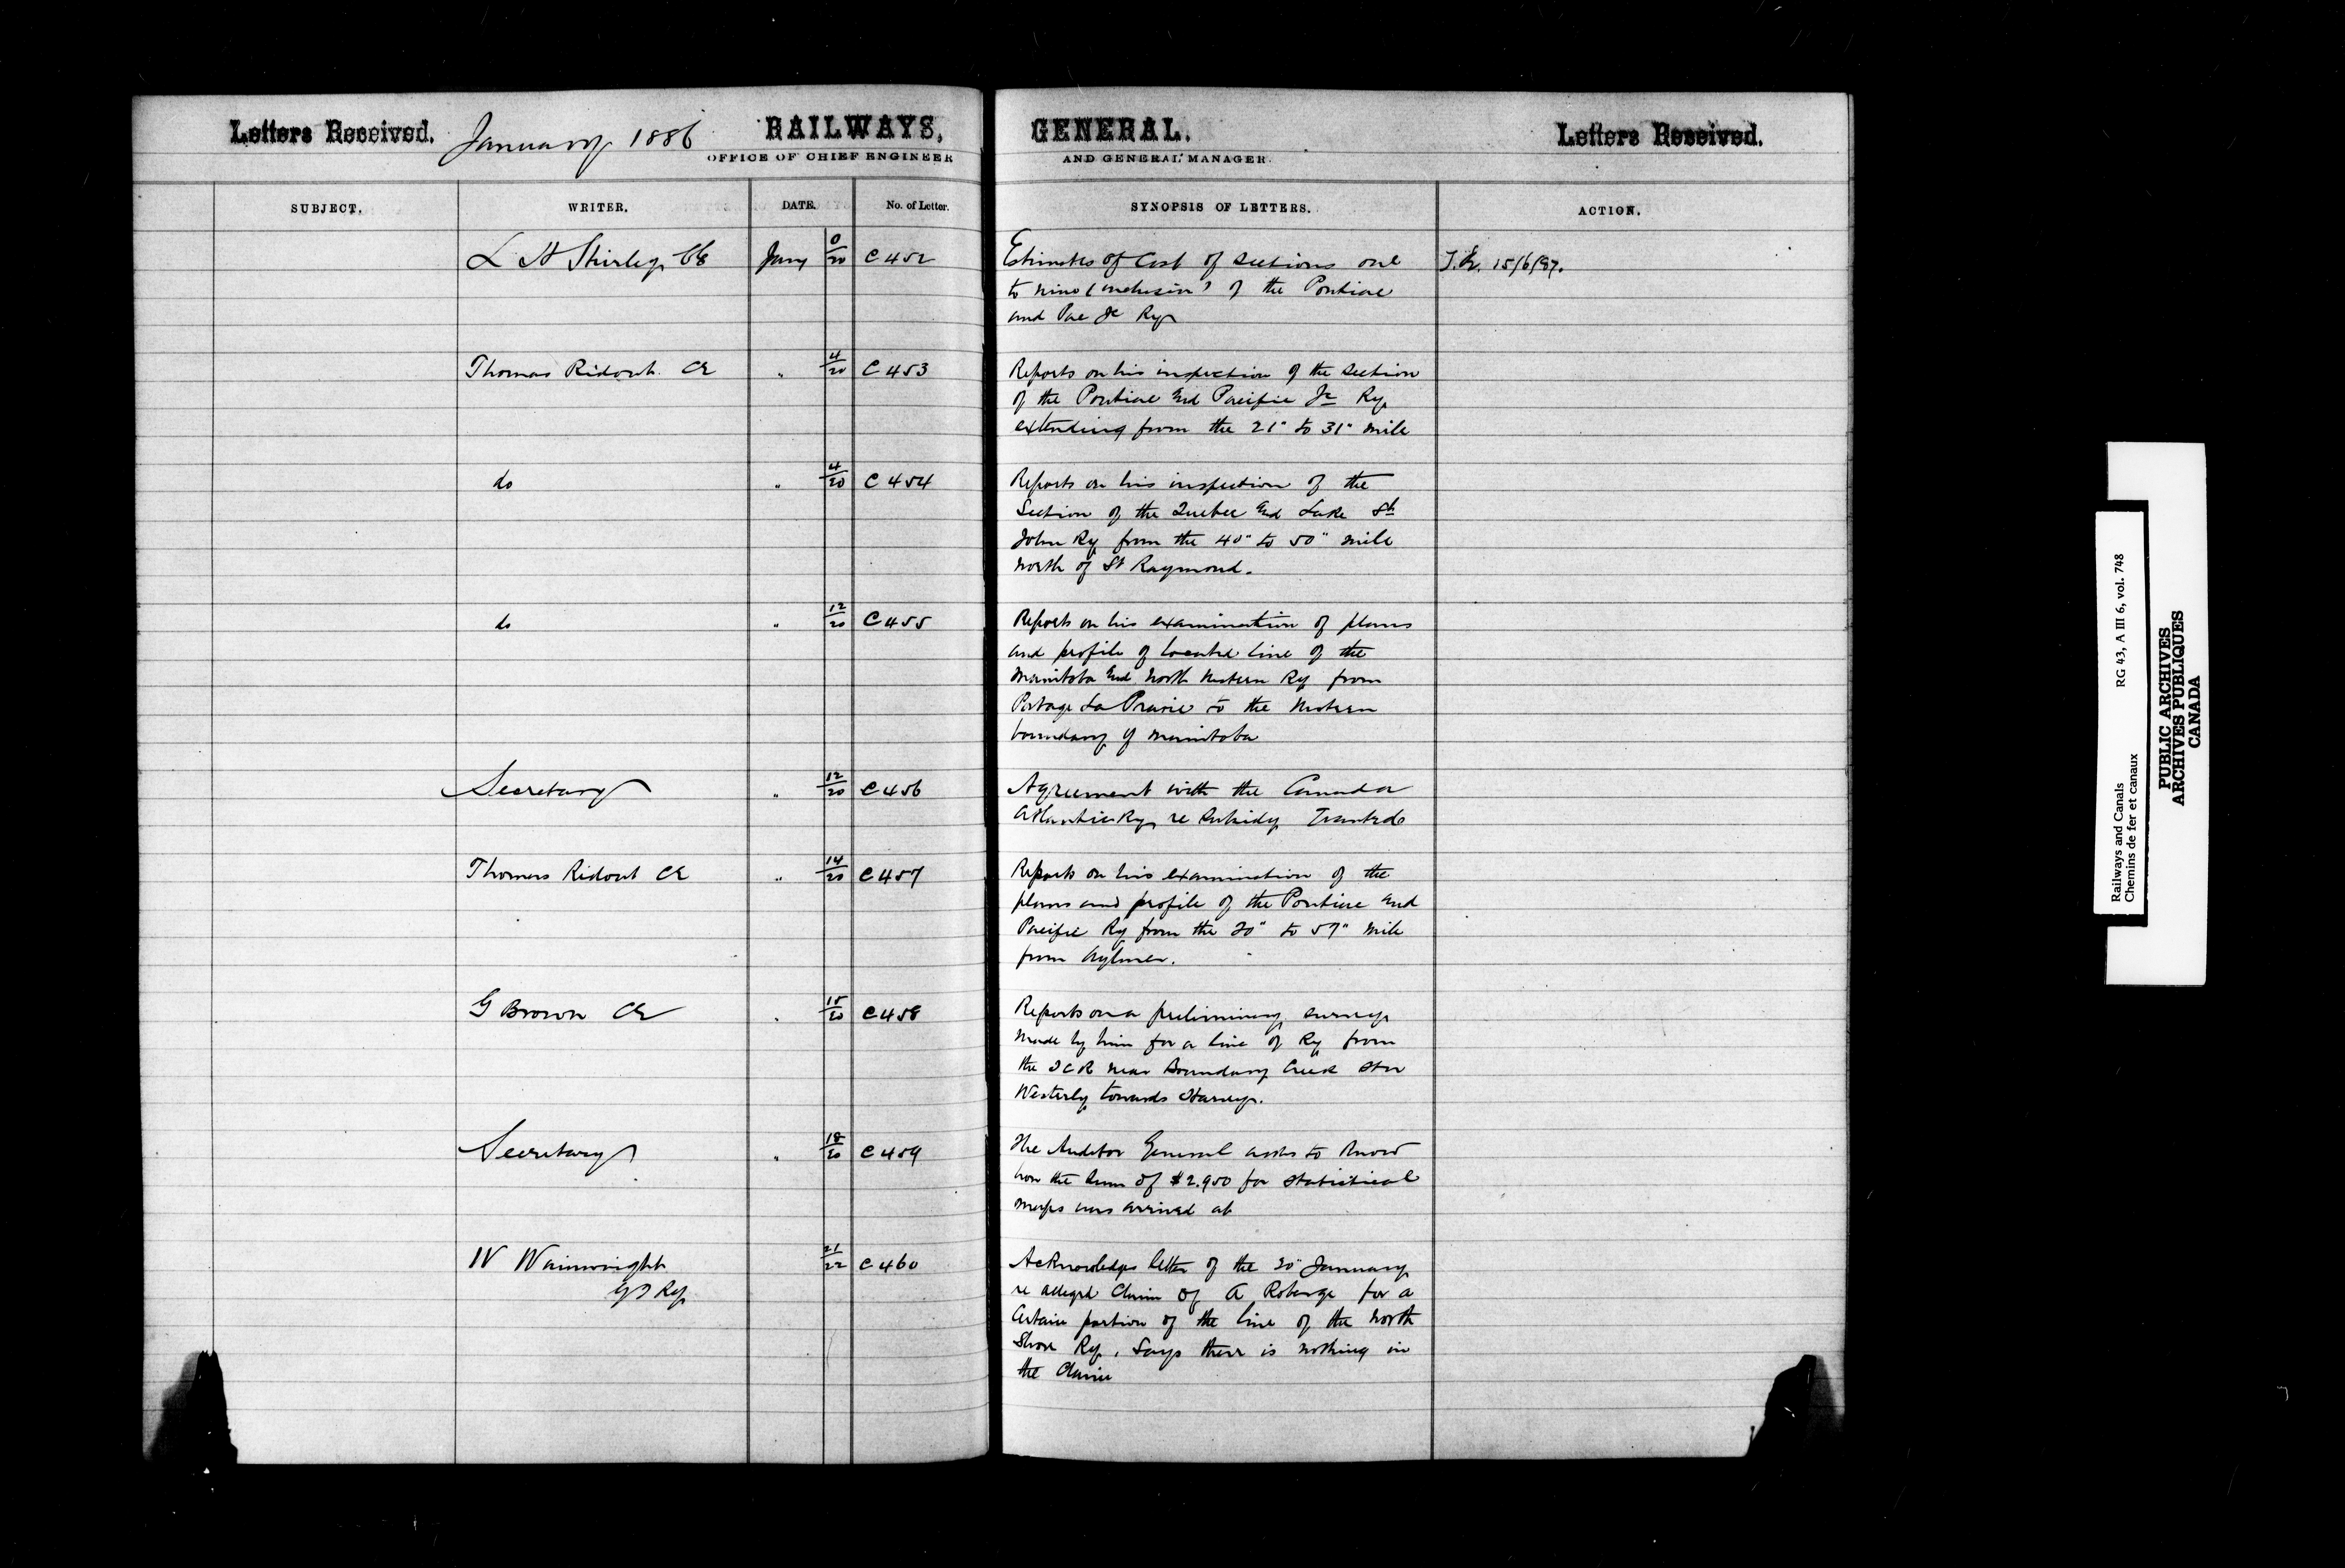 Letters Received. January 1886 RAILWAYS, GENERAL. Letters Received.
OFFICE OF CHIEF ENGINEER AND GENERAL MANAGER.
SUBJECT. WRITER. DATE. No. of Letter. SYNOPSIS OF LETTERS. ACTION.
L H Shirley CE Jany 0/20 C 452 Estimates of Cost of Sections one T.E. 15/6/87.
to nine (inclusive) of the Pontiac
and Pac Jc Ry
Thomas Ridout CE " 4/20 C 453 Reports on his inspection of the Section
of the Pontiac and Pacific Jc Ry
extending from the 21" to 31" mile
do " 4/20 C 454 Reports on his inspection of the
Section of the Quebec and Lake St
John Ry from the 40" to 50" mile
north of St Raymond.
do " 12/20 C 455 Reports on his examination of plans
and profile of located line of the
Manitoba and North Western Ry from
Portage La Prairie to the Western
boundary of Manitoba
Secretary " 12/20 C 456 Agreement with the Canada
Atlantic Ry re Subsidy
Thomas Ridout CE " 14/20 C 457 Reports on his examination of the
plans and profile of the Pontiac and
Pacific Ry from the 20" to 57" mile
from Aylmer.
G Brown CE " 15/20 C 458 Reports on a preliminary survey
made by him for a line of Ry from
the ICR near Boundary Creek Stn
Westerly towards Harvey.
Secretary " 18/20 C 459 The Auditor General asks to know
how the sum of $2.950 for statistical
maps was arrived at
W Wainwright 21/22 C 460 Acknowledges letter of the 20" January
GT Ry re alleged Claim of A Roberge for a
Certain portion of the line of the North
Shore Ry, Says there is nothing in
the Claim
Railways and Canals RG 43, A III 6, vol. 748
Chemins de fer et canaux
PUBLIC ARCHIVES
ARCHIVES PUBLIQUES
CANADA